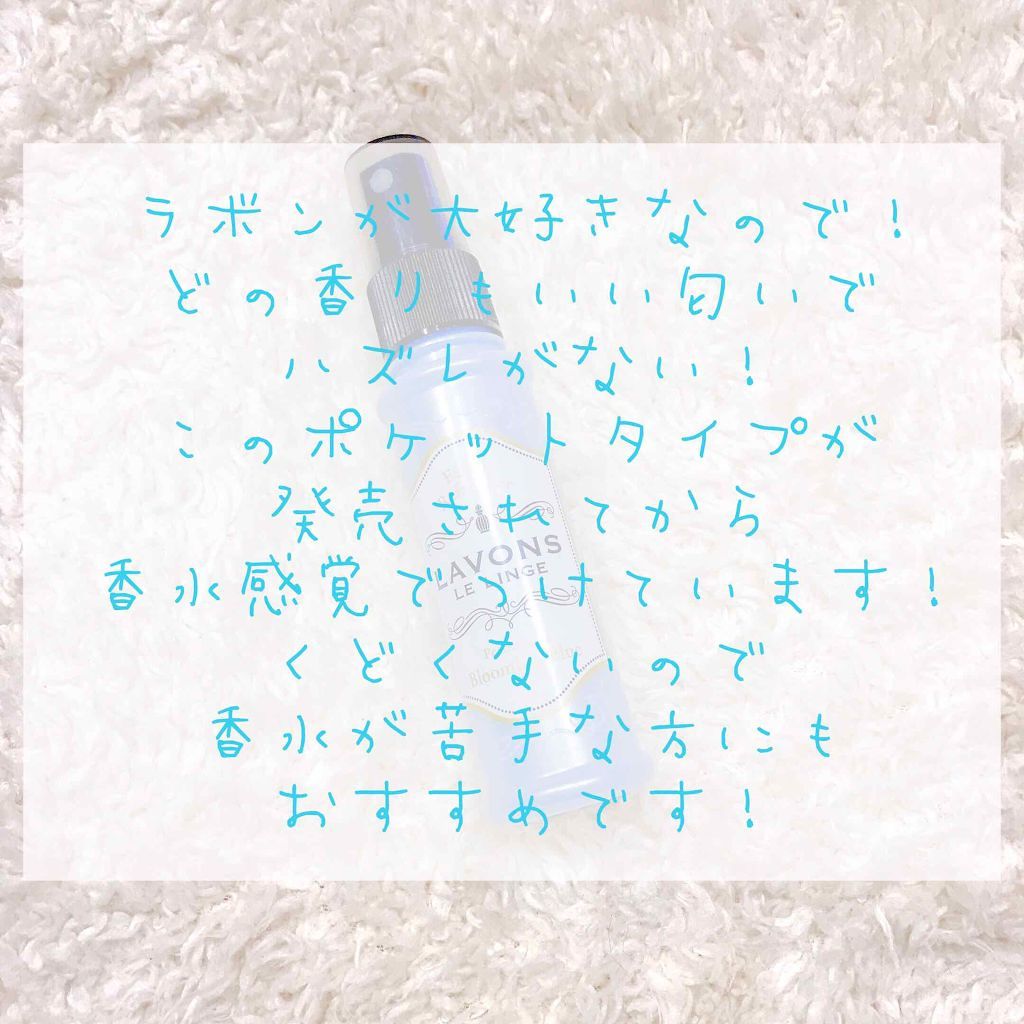 ラボンが大好きなので！
どの香りもいい匂いで
ハズレがない！
このポケットタイプが
発売されてから
香水感覚でつけています！
くどくないので
香水が苦手な方にも
おすすめです！
LAVONS
LE LINGE
Bloom